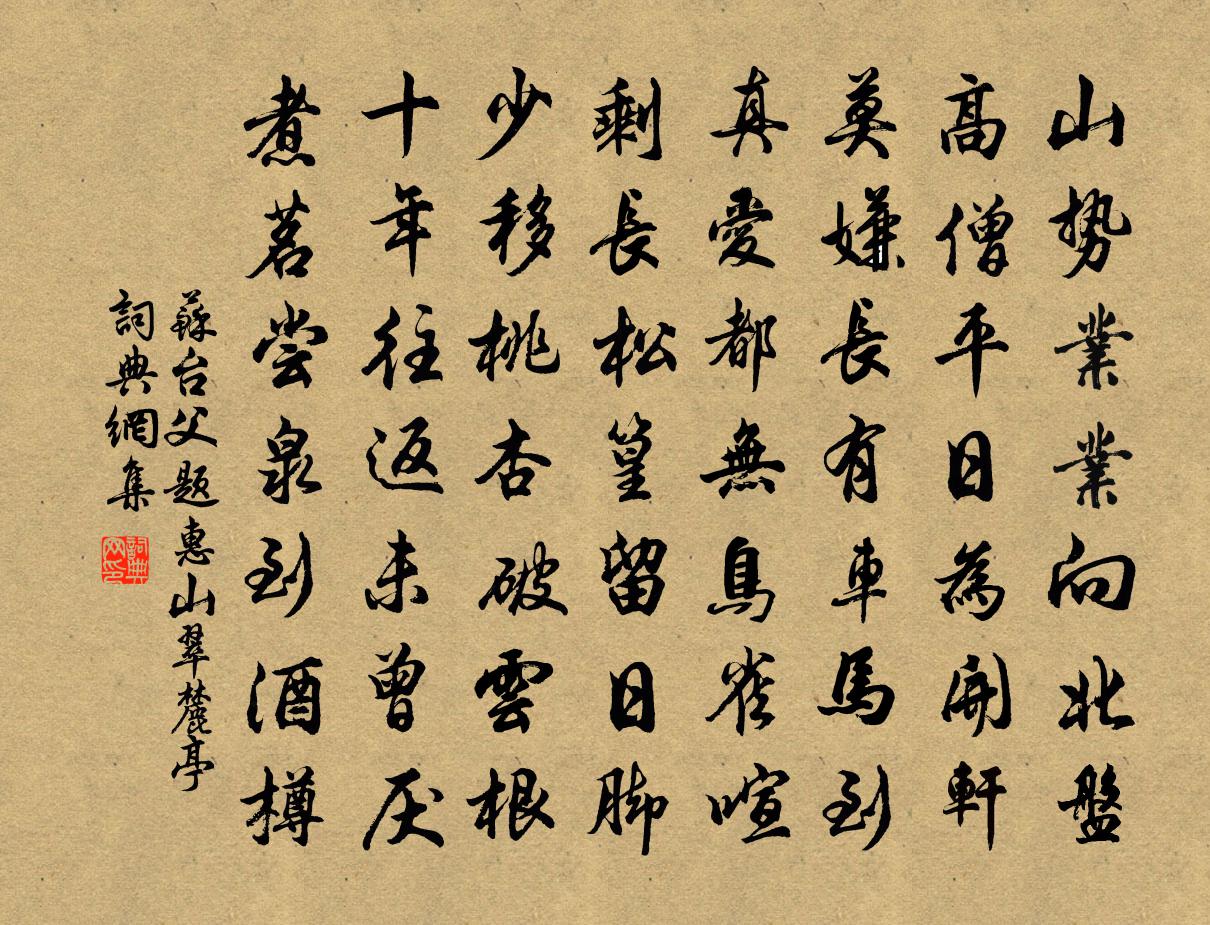 山势業業向北盤
高僧平日為開軒
莫嫌長有車馬到
真愛都無鳥雀喧
剩長松篁留日脚
少移桃杏破雲根
十年往返未曾厌
煮茗尝泉到酒樽
蘇台父题惠山翠麓亭
詞典網集
詞典网印